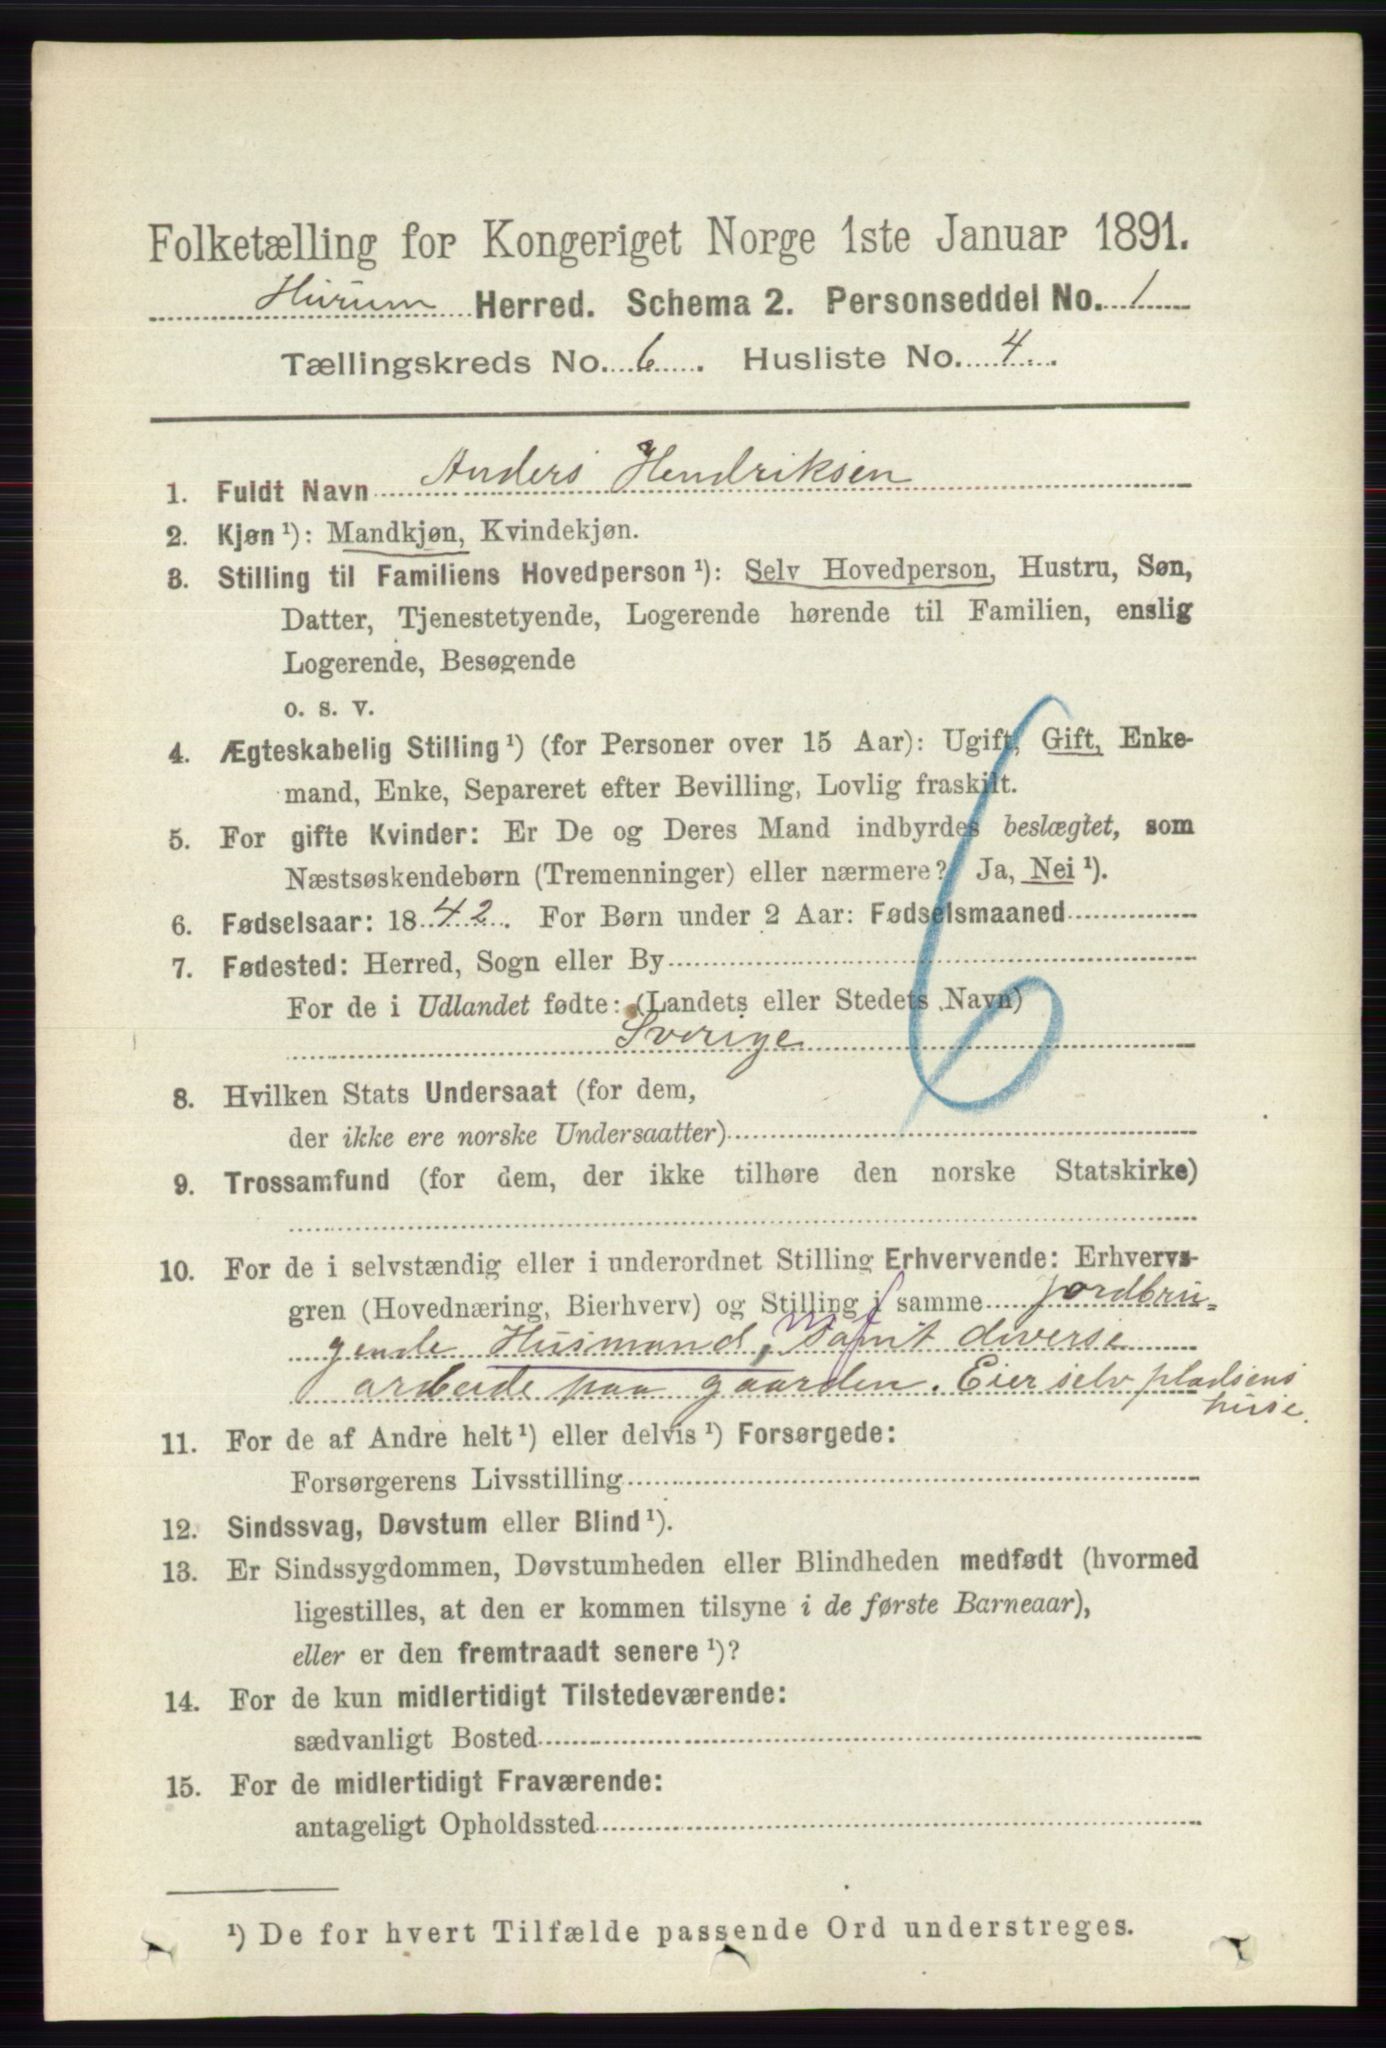 Folketælling for Kongeriget Norge 1ste Januar 1891.
Hurum Herred. Schema 2. Personseddel No. 1
Tællingskreds No. 6. Husliste No. 4.
1. Fuldt Navn Anders Hendriksen
2. Kjøn ¹): Mandkjøn, Kvindekjøn.
3. Stilling til Familiens Hovedperson ¹): Selv Hovedperson, Hustru, Søn,
Datter, Tjenestetyende, Logerende hørende til Familien, enslig
Logerende, Besøgende
o. s. v.
4. Ægteskabelig Stilling ¹) (for Personer over 15 Aar): Ugift, Gift, Enke-
mand, Enke, Separeret efter Bevilling, Lovlig fraskilt.
5. For gifte Kvinder: Er De og Deres Mand indbyrdes beslægtet, som
Næstsøskendebørn (Tremenninger) eller nærmere? Ja, Nei ¹).
6. Fødselsaar: 1842. For Børn under 2 Aar: Fødselsmaaned
7. Fødested: Herred, Sogn eller By
For de i Udlandet fødte: (Landets eller Stedets Navn)
Sverige
8. Hvilken Stats Undersaat (for dem,
der ikke ere norske Undersaatter)
9. Trossamfund (for dem, der ikke tilhøre den norske Statskirke)
10. For de i selvstændig eller i underordnet Stilling Erhvervende: Erhvervs-
gren (Hovednæring, Bierhverv) og Stilling i samme jordbru-
gende Husmand, samt diverse
arbeide paa gaarden. Eier selv pladsens
huse.
11. For de af Andre helt ¹) eller delvis ¹) Forsørgede:
Forsørgerens Livsstilling
12. Sindssvag, Døvstum eller Blind ¹).
13. Er Sindssygdommen, Døvstumheden eller Blindheden medfødt (hvormed
ligestilles, at den er kommen tilsyne i de første Barneaar),
eller er den fremtraadt senere ¹)?
14. For de kun midlertidigt Tilstedeværende:
sædvanligt Bosted
15. For de midlertidigt Fraværende:
antageligt Opholdssted
¹) De for hvert Tilfælde passende Ord understreges.